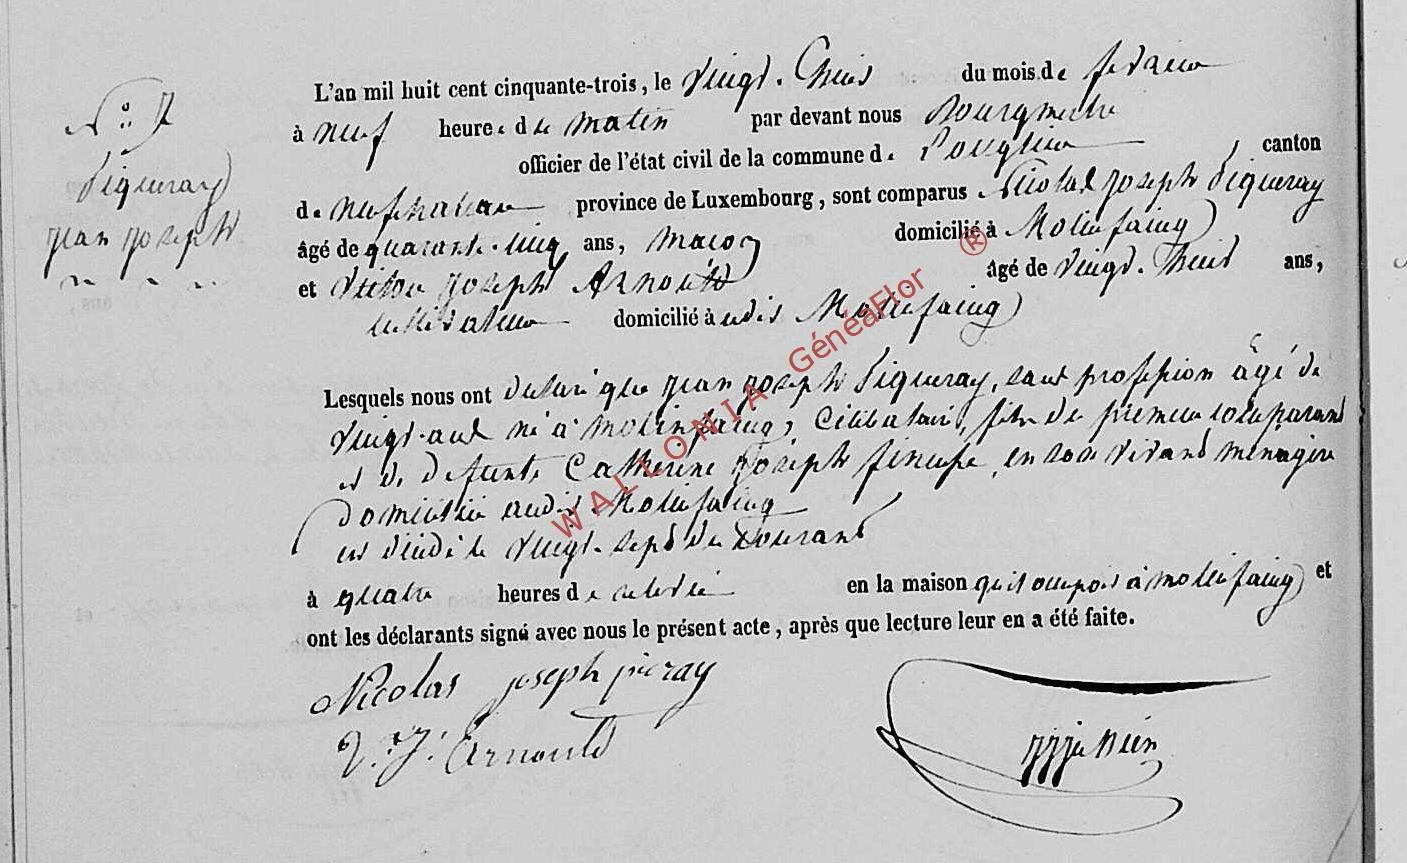 N° 7
Piqueray
Jean Joseph
L'an mil huit cent cinquante-trois, le vingt-huit du mois de fevrier
à neuf heures du matin par devant nous Bourgmestre
officier de l'état civil de la commune de Longlier, canton
de neufchateau province de Luxembourg, sont comparus Nicolas Joseph Piqueray
âgé de quarante-cinq ans, macon domicilié à Molinfaing
et Victor Joseph Arnould âgé de vingt-huit ans,
cultivateur domicilié à udit Molinfaing
Lesquels nous ont declaré que jean joseph Piqueray, sans profession âgé de
vingt-ans né à Molinfaing, Célibataire, fils du premier comparant
et de defunte Catherine Joseph en son vivant menagère
domiciliée audit Molinfaing
est décédé le vingt-sept du Courant
à quatre heures de relevée en la maison qu'il occupois à molinfaing et
ont les déclarants signé avec nous le présent acte, après que lecture leur en a été faite.
Nicolas joseph picray
V. J. Arnould
WALLONIA GénéaFlor ®